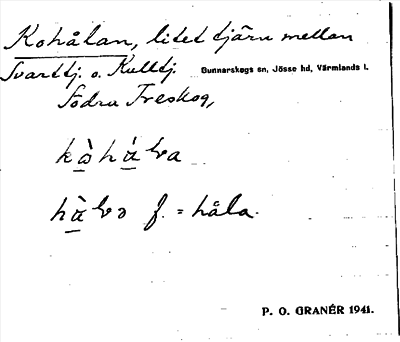 Kohålan, litet tjärn mellan
Svarttj. o. Kulltj. Gunnarskogs sn, Jösse hd, Värmlands l.
Södra Treskog,
f. = håla.
P. O. GRANÉR 1941.